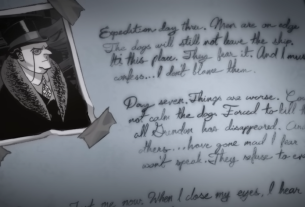 Expedition day three. Men are on edge
The dogs will still not leave the ship.
It's this place. They fear it. And I must
confess... I don't blame them.
Day seven. Things are worse. Could
not calm the dogs. Forced to kill
all. has disappeared.
others... have gone mad I fear
won't speak. They refuse to
me now. When I close my eyes, I hear